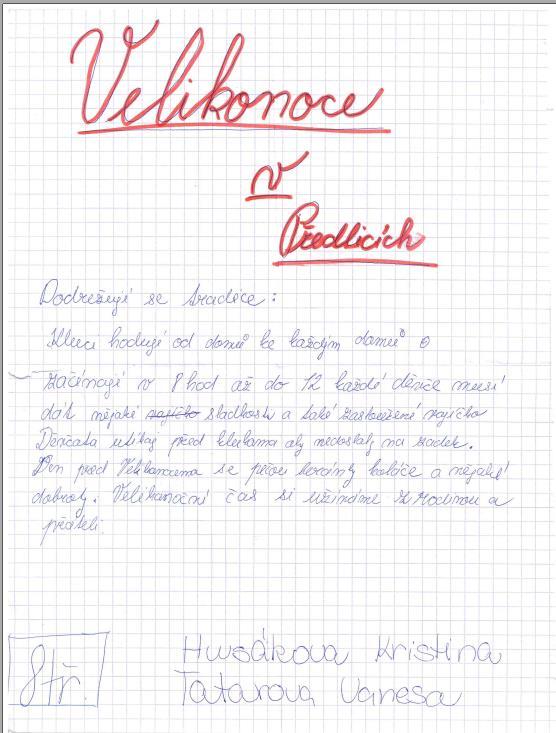 Velikonoce
v
Předlicích
Dodrežují se tradice:
Kluci hodují od domů ke každým domů o
začínají v 8 hod až do 12 každé děvče musí
dát nějaké vajíčko sladkosti a také vajíčko
Děvčata utíkaj před klukama aby nedostaly na zadek.
Den před Velikonocema se pečou koláče a nějaké
dobroty. Velikonoční čas si užíváme z rodinou a
přáteli.
8tř.
Husákova Kristina
Tatarova Vanesa